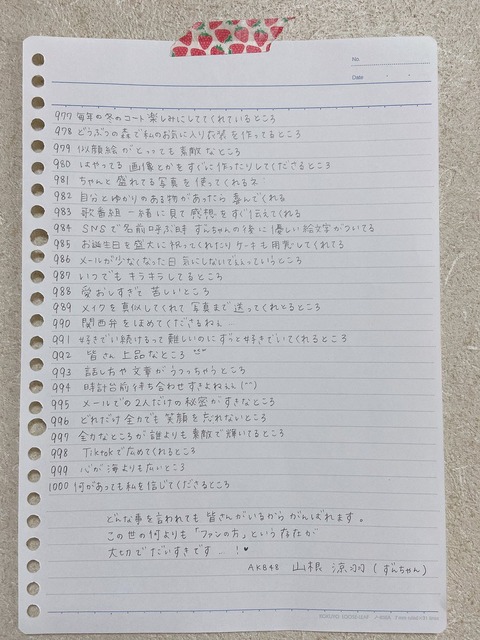 No.
Date
977 毎年の冬のコート楽しみにしててくれているところ
978 どうぶつの森で私のお気に入り衣装を作ってるところ
979 似顔絵がとっっても素敵なところ
980 はやってる画像とかをすぐに作ったりしてくださるところ
981 ちゃんと盛れてる写真を使ってくれるネ
982 自分とゆかりのある物があったら喜んでくれる
983 歌番組一緒に見て感想をすぐ伝えてくれる
984 SNSで名前呼ぶ時ずんちゃんの後に優しい絵文字がついてる
985 お誕生日を盛大に祝ってくれたりケーキも用意してくれてる
986 メールが少なくなった日気にしないでぇぇっていうところ
987 いつでもキラキラしてるところ
988 愛おしすぎて苦しいところ
989 メイクを真似してくれて写真まで送ってくれるところ
990 関西弁をほめてくださるねぇ…
991 好きでい続けるって難しいのにずっと好きでいてくれるところ
992 皆さん上品なところ
993 話し方や文章がうつっちゃうところ
994 時計台前待ち合わせすきよねぇぇ(^^)
995 メールでの2人だけの秘密がすきなところ
996 どれだけ全力でも笑顔を忘れないところ
997 全力なところが誰よりも素敵で輝いてるところ
998 Tiktokで広めてくれるところ
999 心が海よりも広いところ
1000 何があっても私を信じてくださるところ
どんな事を言われても皆さんがいるからがんばれます。
この世の何よりも「ファンの方」という存在が
大切でだいすきです…!♥
AKB48 山根 涼羽(ずんちゃん)
KOKUYO LOOSE-LEAF